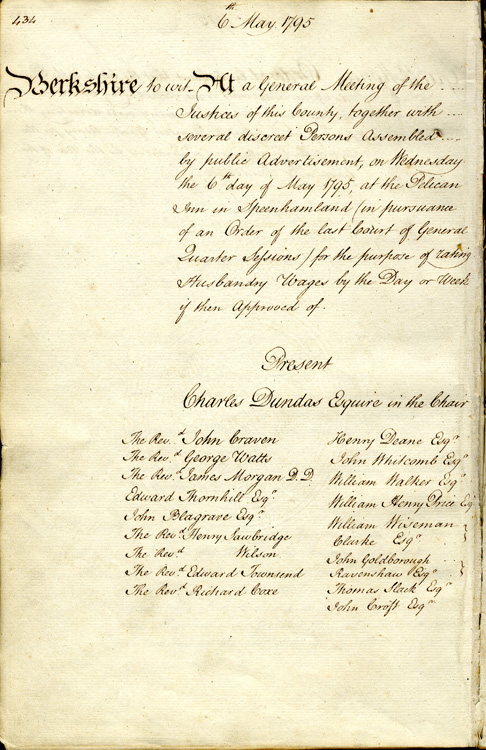 434
6th May 1795
Berkshire to wit_ At a General Meeting of the ....
Justices of this County, together with ....
several discreet Persons Assembled ....
by public Advertisement, on Wednesday
the 6th day of May 1795, at the Pelican
Inn in Speenhamland (in pursuance
of an Order of the last Court of General
Quarter Sessions) for the purpose of rating
Husbandry Wages by the Day or Week
if then Approved of.
Present
Charles Dundas Esquire in the Chair
The Rev.d John Craven
The Rev.d George Watts
The Rev.d James Morgan D.D.
Edward Thornhill Esq.r
John Blagrave Esq.r
The Rev.d Henry Sawbridge
The Rev.d Wilson
The Rev.d Edward Townsend
The Rev.d Richard Coxe
Henry Deane Esq.r
John Whitcomb Esq.r
William Walker Esq.r
William Henry Price Esq.r
William Wiseman
Clarke Esq.r
John Goldborough
Ravenshaw Esq.r
Thomas Slack Esq.r
John Croft Esq.r